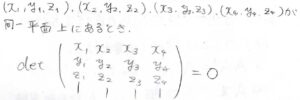 (x₁, y₁, z₁), (x₂, y₂, z₂), (x₃, y₃, z₃), (x₄, y₄, z₄)が
同一平面上にあるとき.
det ( x₁ x₂ x₃ x₄
y₁ y₂ y₃ y₄
z₁ z₂ z₃ z₄
1 1 1 1 ) = 0